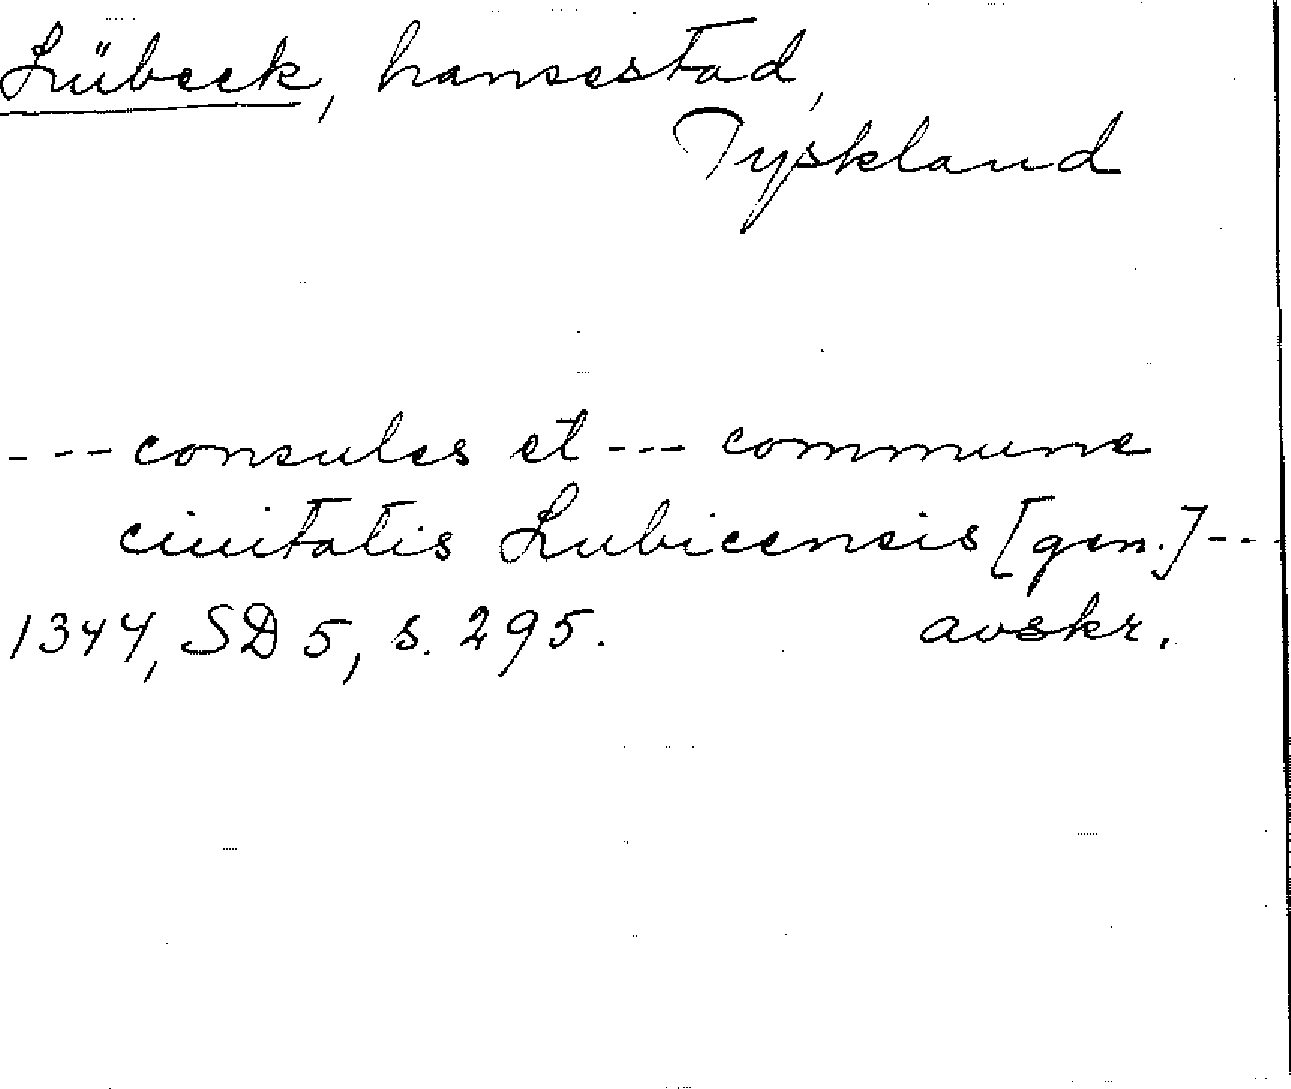 Lübeck, hansestad,
Tyskland
--- consules et --- commune
ciuitatis Lubicensis [gen.] --
1344, SD 5, s. 295. avskr.